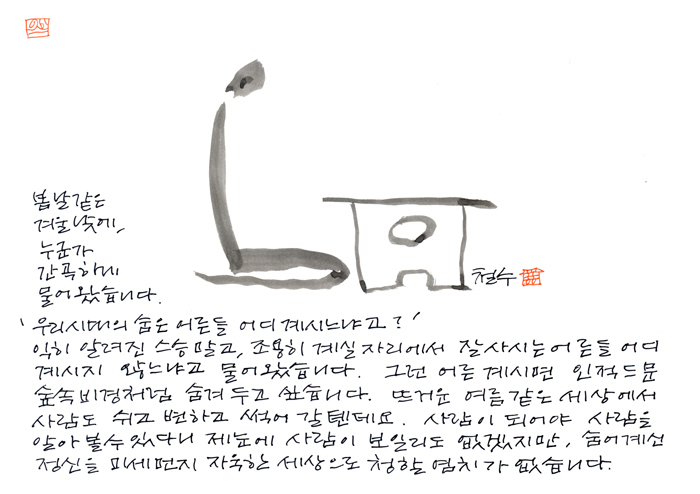 봄날같은
겨울낮에,
누군가
간곡하게
물어왔습니다.
철수
'우리시대의 숨은 어른들 어디계시느냐고?'
익히 알려진 스승말고, 조용히 계실자리에서 잘사시는어른들 어디
계시지 않느냐고 물어왔습니다. 그런 어른 계시면 인적드문
숲속비경처럼 숨겨두고 싶습니다. 뜨거운 여름같은 세상에서
사람도 쉬고 변하고 썩어 갈텐데요. 사람이 되어야 사람을
알아볼수있다니 제눈에 사람이 보일리도 없겠지만, 숨어계신
정신을 미세먼지 자욱한 세상으로 청할 염치가 없습니다.